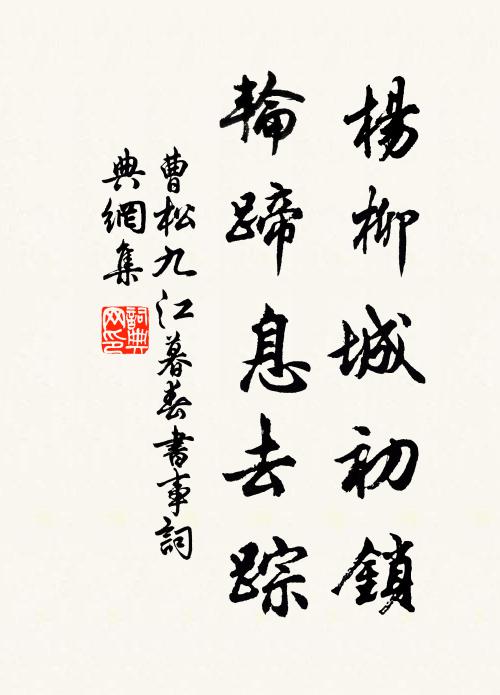 楊柳城初鎖
輪蹄息去踪
曹松九江暮春書事詞
典網集
詞典
网印